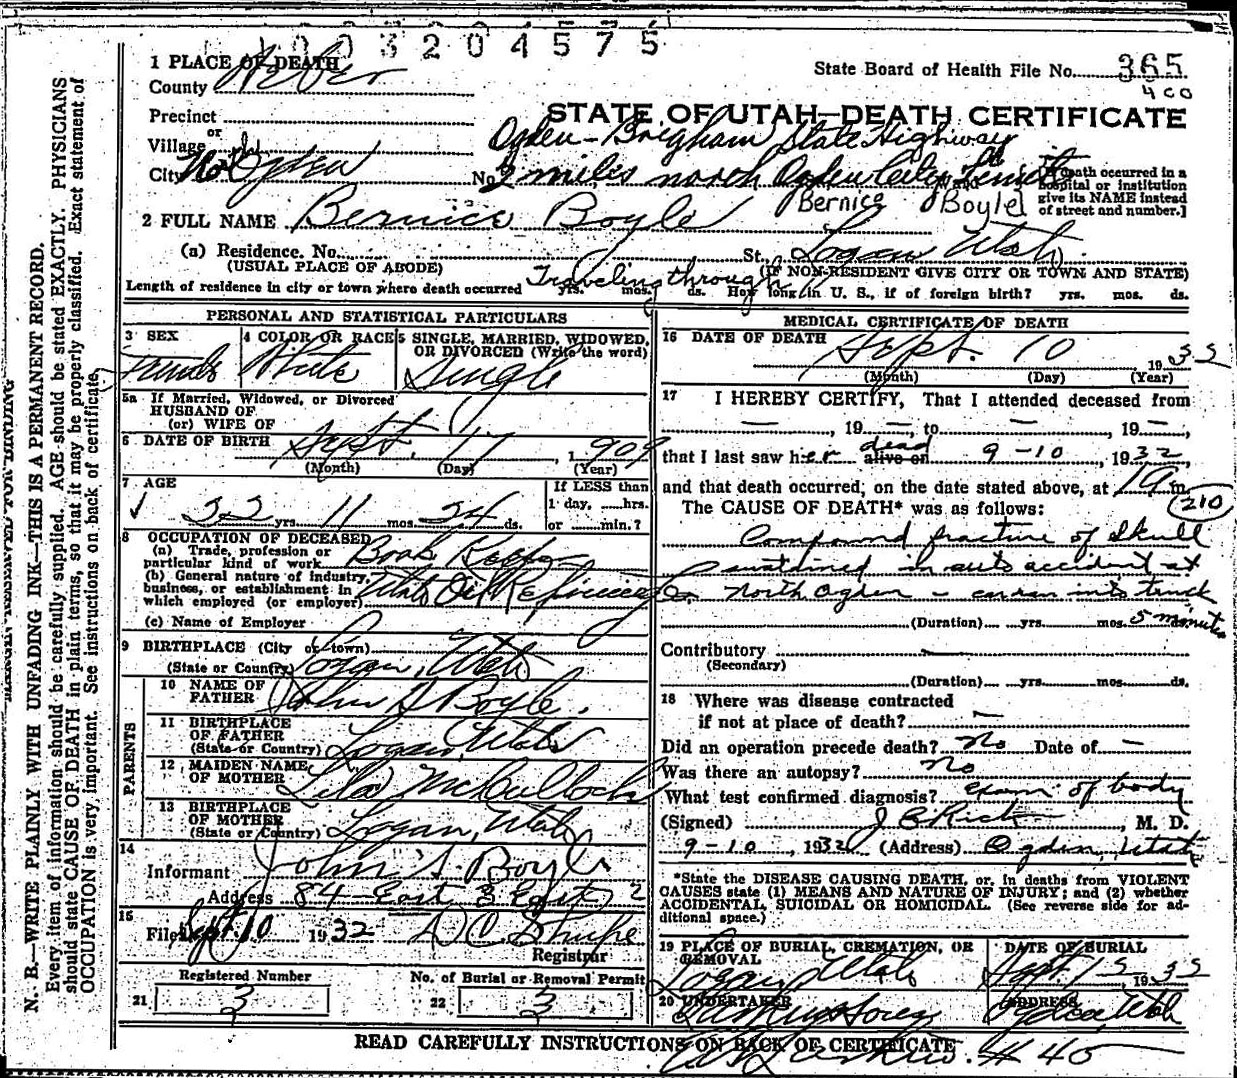 003204575
1 PLACE OF DEATH
County Weber
State Board of Health File No. 365
400
STATE OF UTAH—DEATH CERTIFICATE
Precinct
or
Village
Ogden - Brigham State Highway
City No Ogden No. 2 miles north Ogden City limits
[If death occurred in a hospital or institution give its NAME instead of street and number.]
Bernice Boyle
2 FULL NAME Bernice Boyle
(a) Residence. No. St., Logan Utah.
(USUAL PLACE OF ABODE) (IF NON-RESIDENT GIVE CITY OR TOWN AND STATE)
Length of residence in city or town where death occurred Traveling through yrs. mos. ds. How long in U. S., if of foreign birth? yrs. mos. ds.
PERSONAL AND STATISTICAL PARTICULARS
3 SEX
4 COLOR OR RACE White
5 SINGLE, MARRIED, WIDOWED, OR DIVORCED (Write the word) Single
5a If Married, Widowed, or Divorced
HUSBAND OF
(or) WIFE OF
6 DATE OF BIRTH Sept. 17 1909
(Month) (Day) (Year)
7 AGE
22 yrs. 11 mos. 24 ds.
If LESS than
1 day, hrs.
or min.?
8 OCCUPATION OF DECEASED
(a) Trade, profession or particular kind of work Book Keeper
(b) General nature of industry, business, or establishment in which employed (or employer) Utah Oil Refining Co.
(c) Name of Employer
9 BIRTHPLACE (City or town)
(State or Country) Logan, Utah
PARENTS
10 NAME OF FATHER John S Boyle.
11 BIRTHPLACE OF FATHER
(State or Country) Logan, Utah
12 MAIDEN NAME OF MOTHER Lila McCulloch
13 BIRTHPLACE OF MOTHER
(State or Country) Logan, Utah
14
Informant John S. Boyle
Address 84 East 3
15
Filed Sept 10 1932
Registrar
Registered Number
21 3
No. of Burial or Removal Permit
22 3
MEDICAL CERTIFICATE OF DEATH
16 DATE OF DEATH Sept. 10 1932
(Month) (Day) (Year)
17 I HEREBY CERTIFY, That I attended deceased from
—, 19 —, to —, 19 —,
that I last saw her alive on dead 9-10, 1932,
and that death occurred, on the date stated above, at m.
210
The CAUSE OF DEATH* was as follows:
Compound fracture of skull
sustained in auto accident at
North Ogden - car ran into truck
(Duration) yrs. mos. 5 minutes
Contributory —
(Secondary)
(Duration) yrs. mos. ds.
18 Where was disease contracted
if not at place of death? —
Did an operation precede death? no Date of —
Was there an autopsy? no
What test confirmed diagnosis? exam. of body
(Signed) J E Rich, M. D.
9-10, 1932 (Address) Ogden, Utah
*State the DISEASE CAUSING DEATH, or, in deaths from VIOLENT
CAUSES state (1) MEANS AND NATURE OF INJURY; and (2) whether
ACCIDENTAL, SUICIDAL OR HOMICIDAL. (See reverse side for ad-
ditional space.)
19 PLACE OF BURIAL, CREMATION, OR REMOVAL Logan Utah
DATE OF BURIAL Sept. 1932
20 UNDERTAKER
ADDRESS Ogden, Utah
# 40
READ CAREFULLY INSTRUCTIONS ON BACK OF CERTIFICATE
MARGIN RESERVED FOR BINDING
N. B.—WRITE PLAINLY WITH UNFADING INK—THIS IS A PERMANENT RECORD.
Every item of information should be carefully supplied. AGE should be stated EXACTLY. PHYSICIANS
should state CAUSE OF DEATH in plain terms, so that it may be properly classified. Exact statement of
OCCUPATION is very important. See instructions on back of certificate.